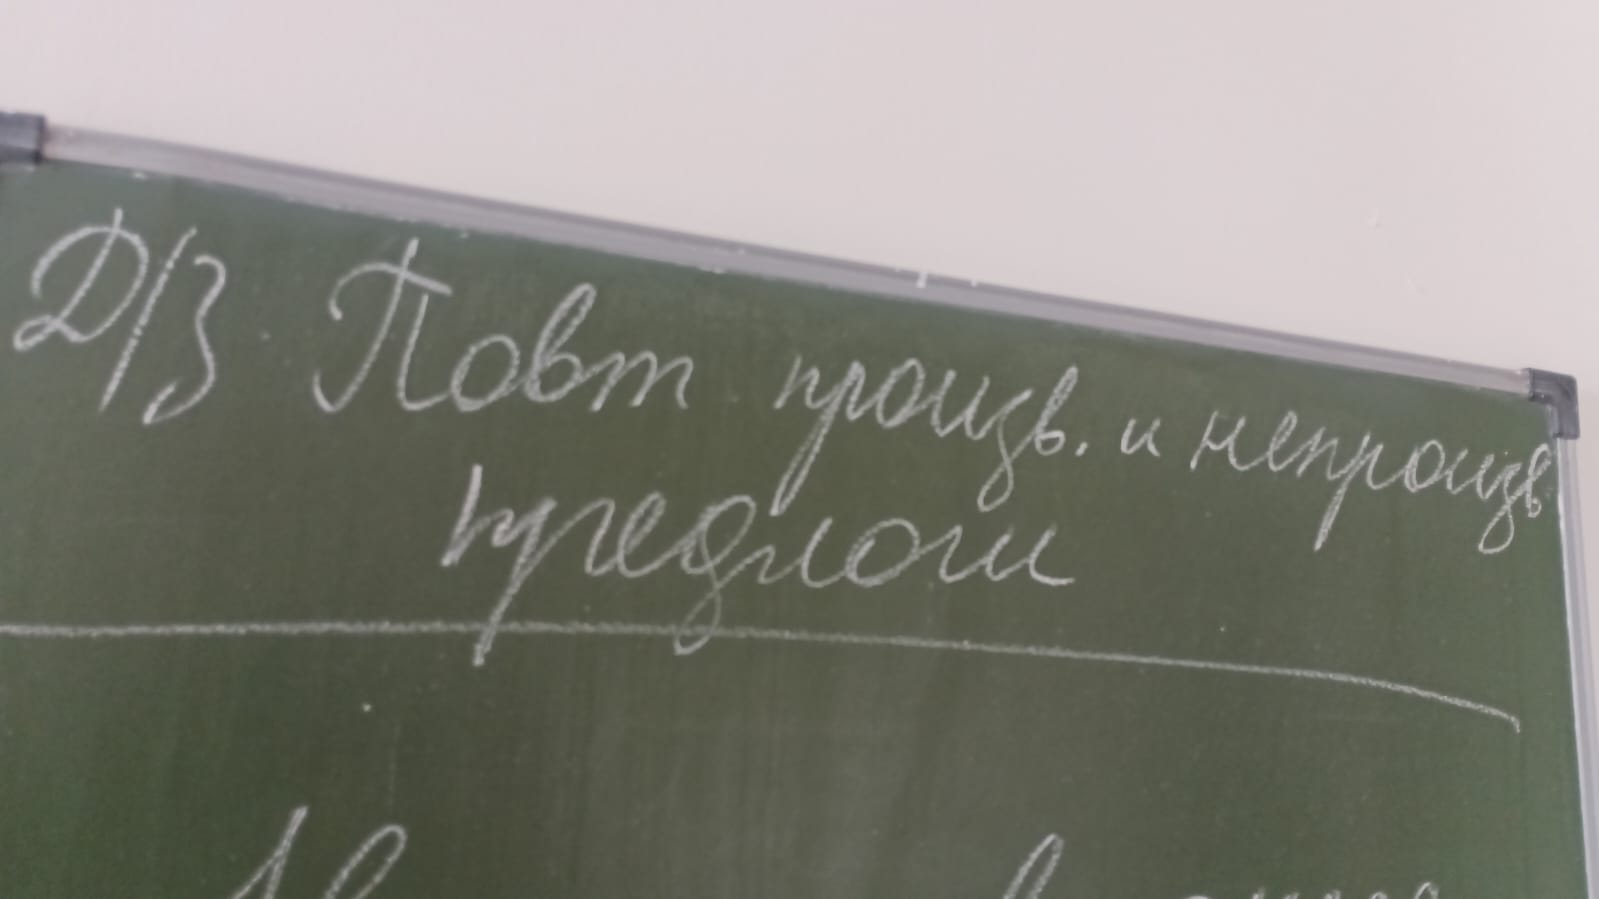 Д/З Повт произв. и непроизв
предлоги